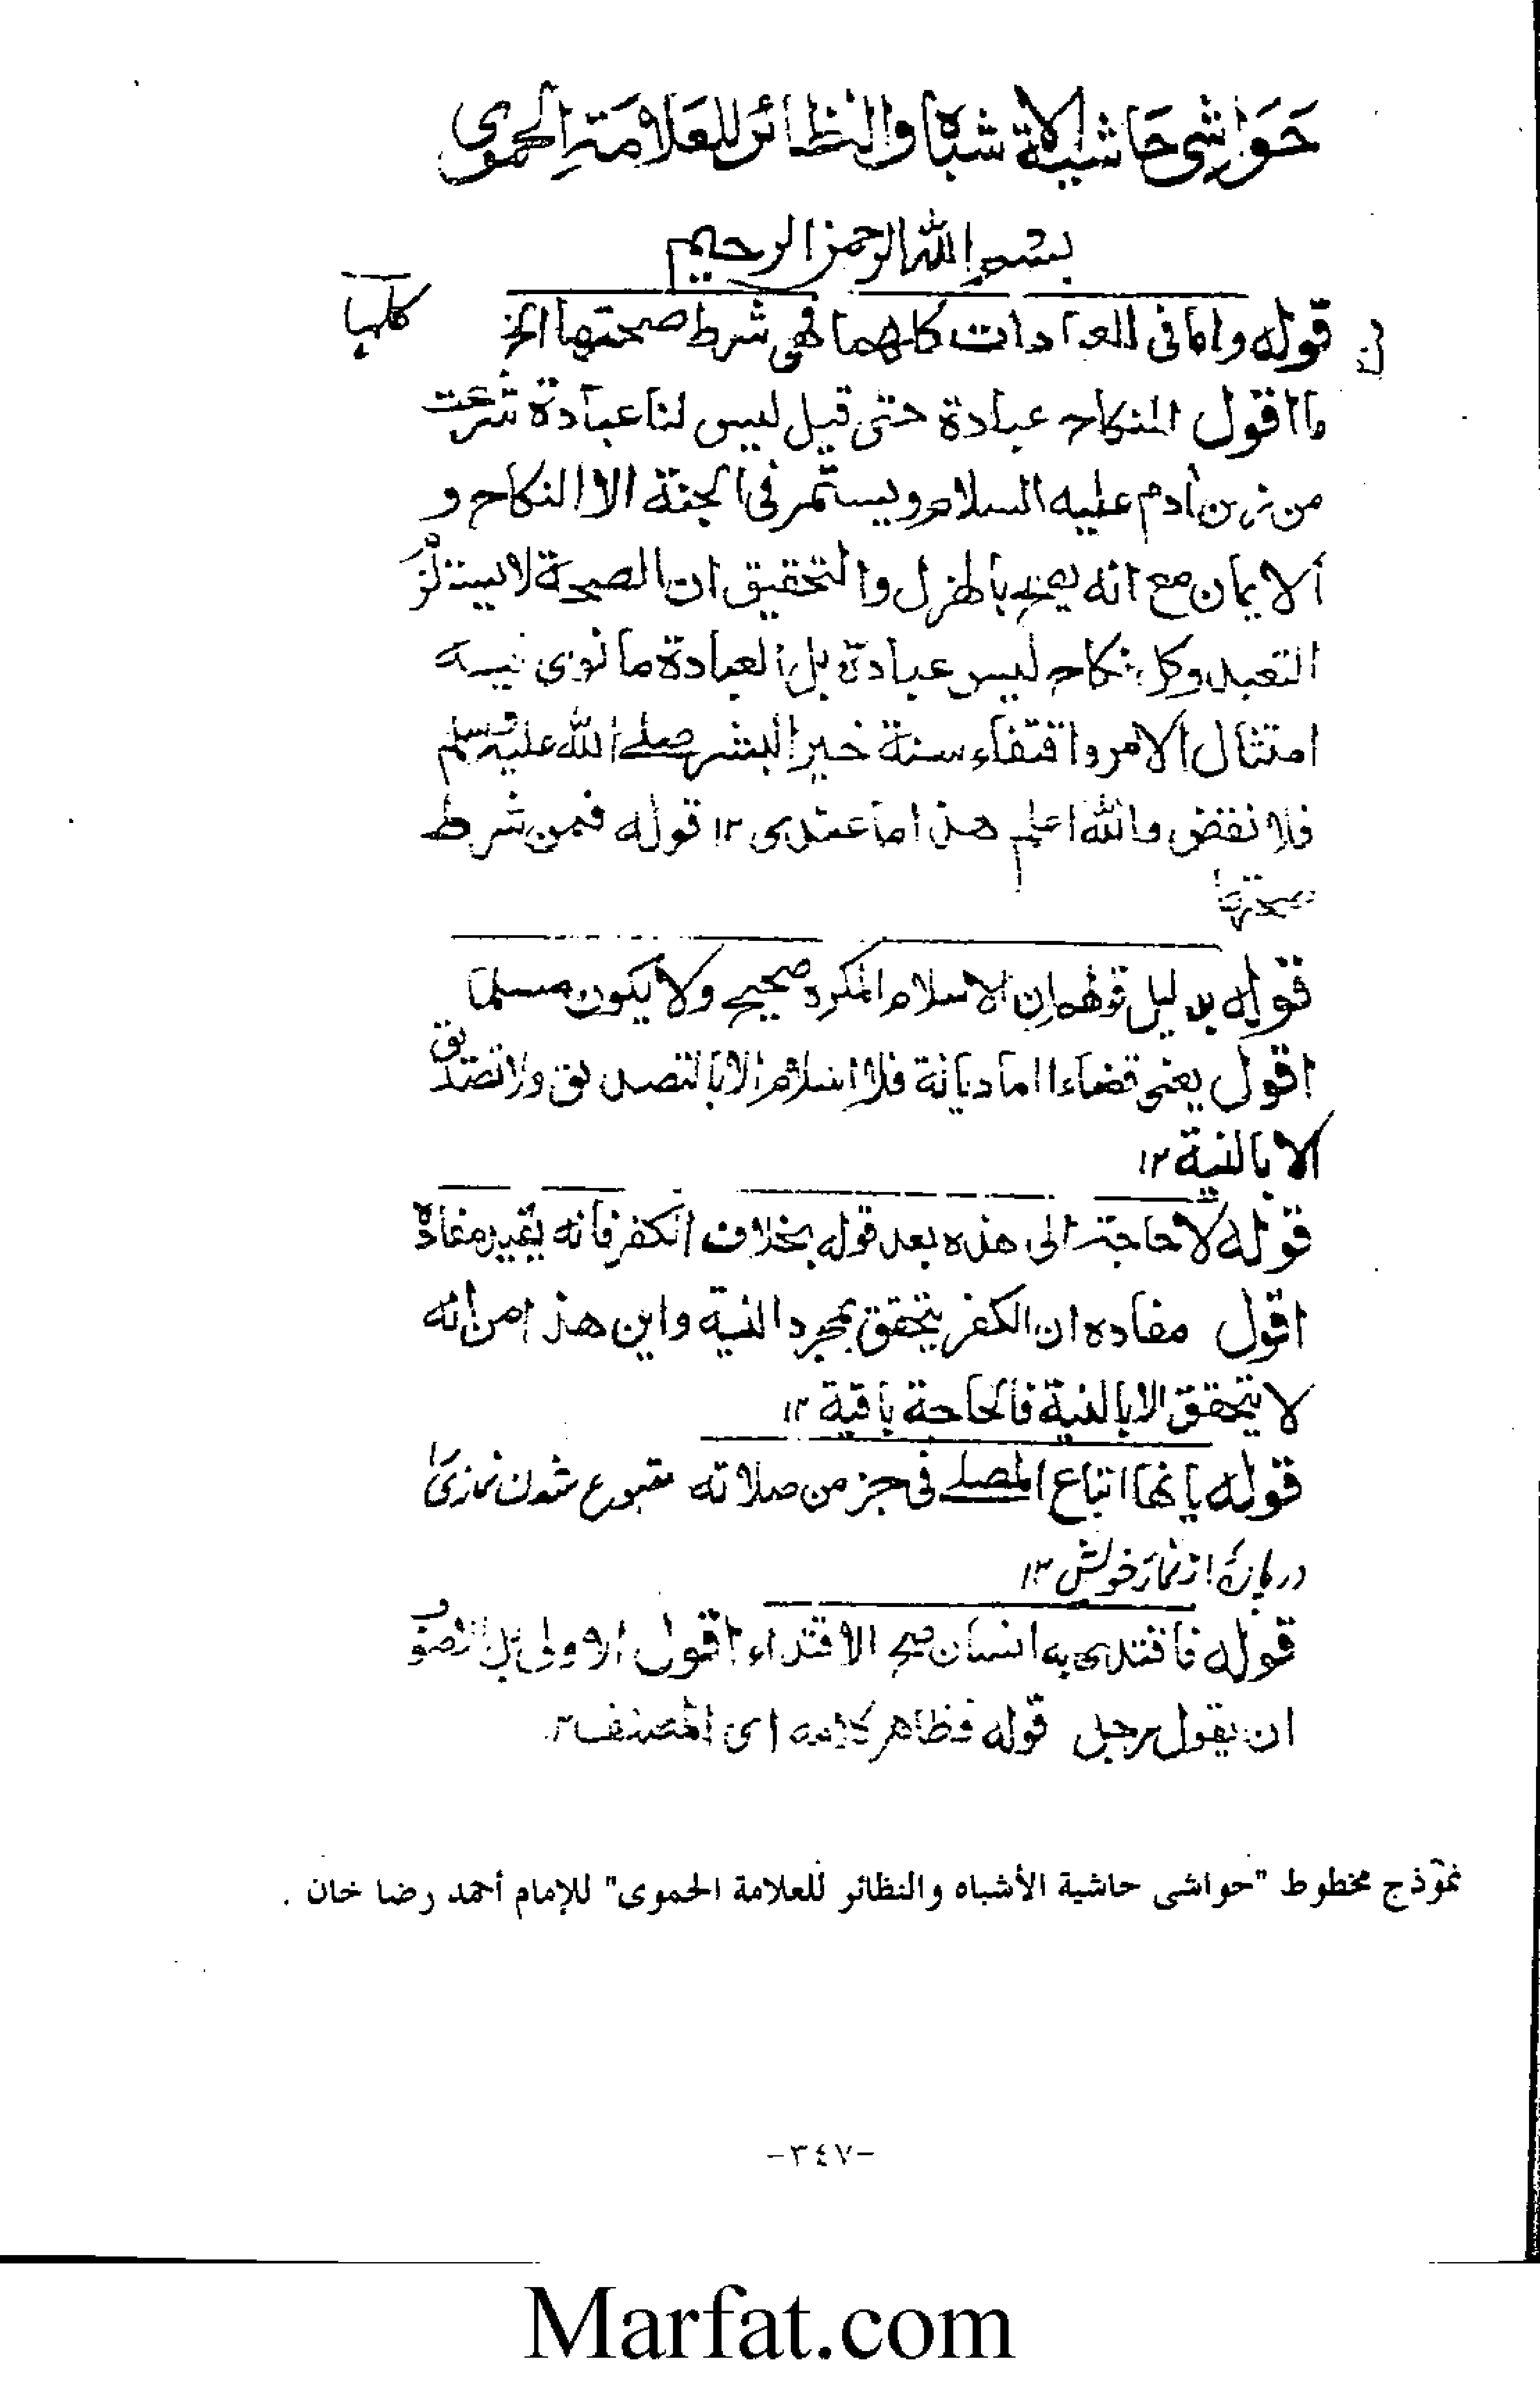 حَوَاشِي حَاشية الاشباه والنظائر للعَلامَةِ الحموى
بسم الله الرحمن الرحيم
قوله واما في العبادات كلها فهى شرط صحتها الخ كلها
اقول النكاح عبادة حتى قيل ليس لنا عبادة شرعت
من زمن آدم عليه السلام ويستمر فى الجنة الا النكاح و
الايمان مع انه يصح بالهزل والتحقيق ان الصحة لا يستلزم
التعبد وكل نكاح ليس عبادة بل العبادة ما نوى فيه
امتثال الامر واقتفاء سنة خير البشر صلى الله عليه وسلم
فلا نقض والله اعلم هذا ما عندى ١٢ قوله فمن شرط
صحتها
قوله بدليل قولهم ان الاسلام المكره صحيح ولا يكون مسلما
اقول يعنى قضاءا اما ديانة فلا اسلام الا بالتصديق ولا تصديق
الا بالنية ١٢
قوله لا حاجة الى هذه بعد قوله بخلاف الكفر فانه يغير مفاده
اقول مفاده ان الكفر يتحقق بمجرد النية واين هذا من انه
لا يتحقق الا بالنية فالحاجة باقية ١٢
قوله بانها اتباع المصلے فى جز من صلاته متبوع شدن نمازى
درپاره از نماز خولش ١٢
قوله فاقتدى به انسان صح الاقتداء اقول الاولى بل
ان يقول برجل قوله فظاهر كلامه اى المصنف ١٢
نموّذج مخطوط "حواشى حاشية الأشباه والنظائر للعلامة الحموى" للإمام أحمد رضا خان .
-٣٤٧-
Marfat.com